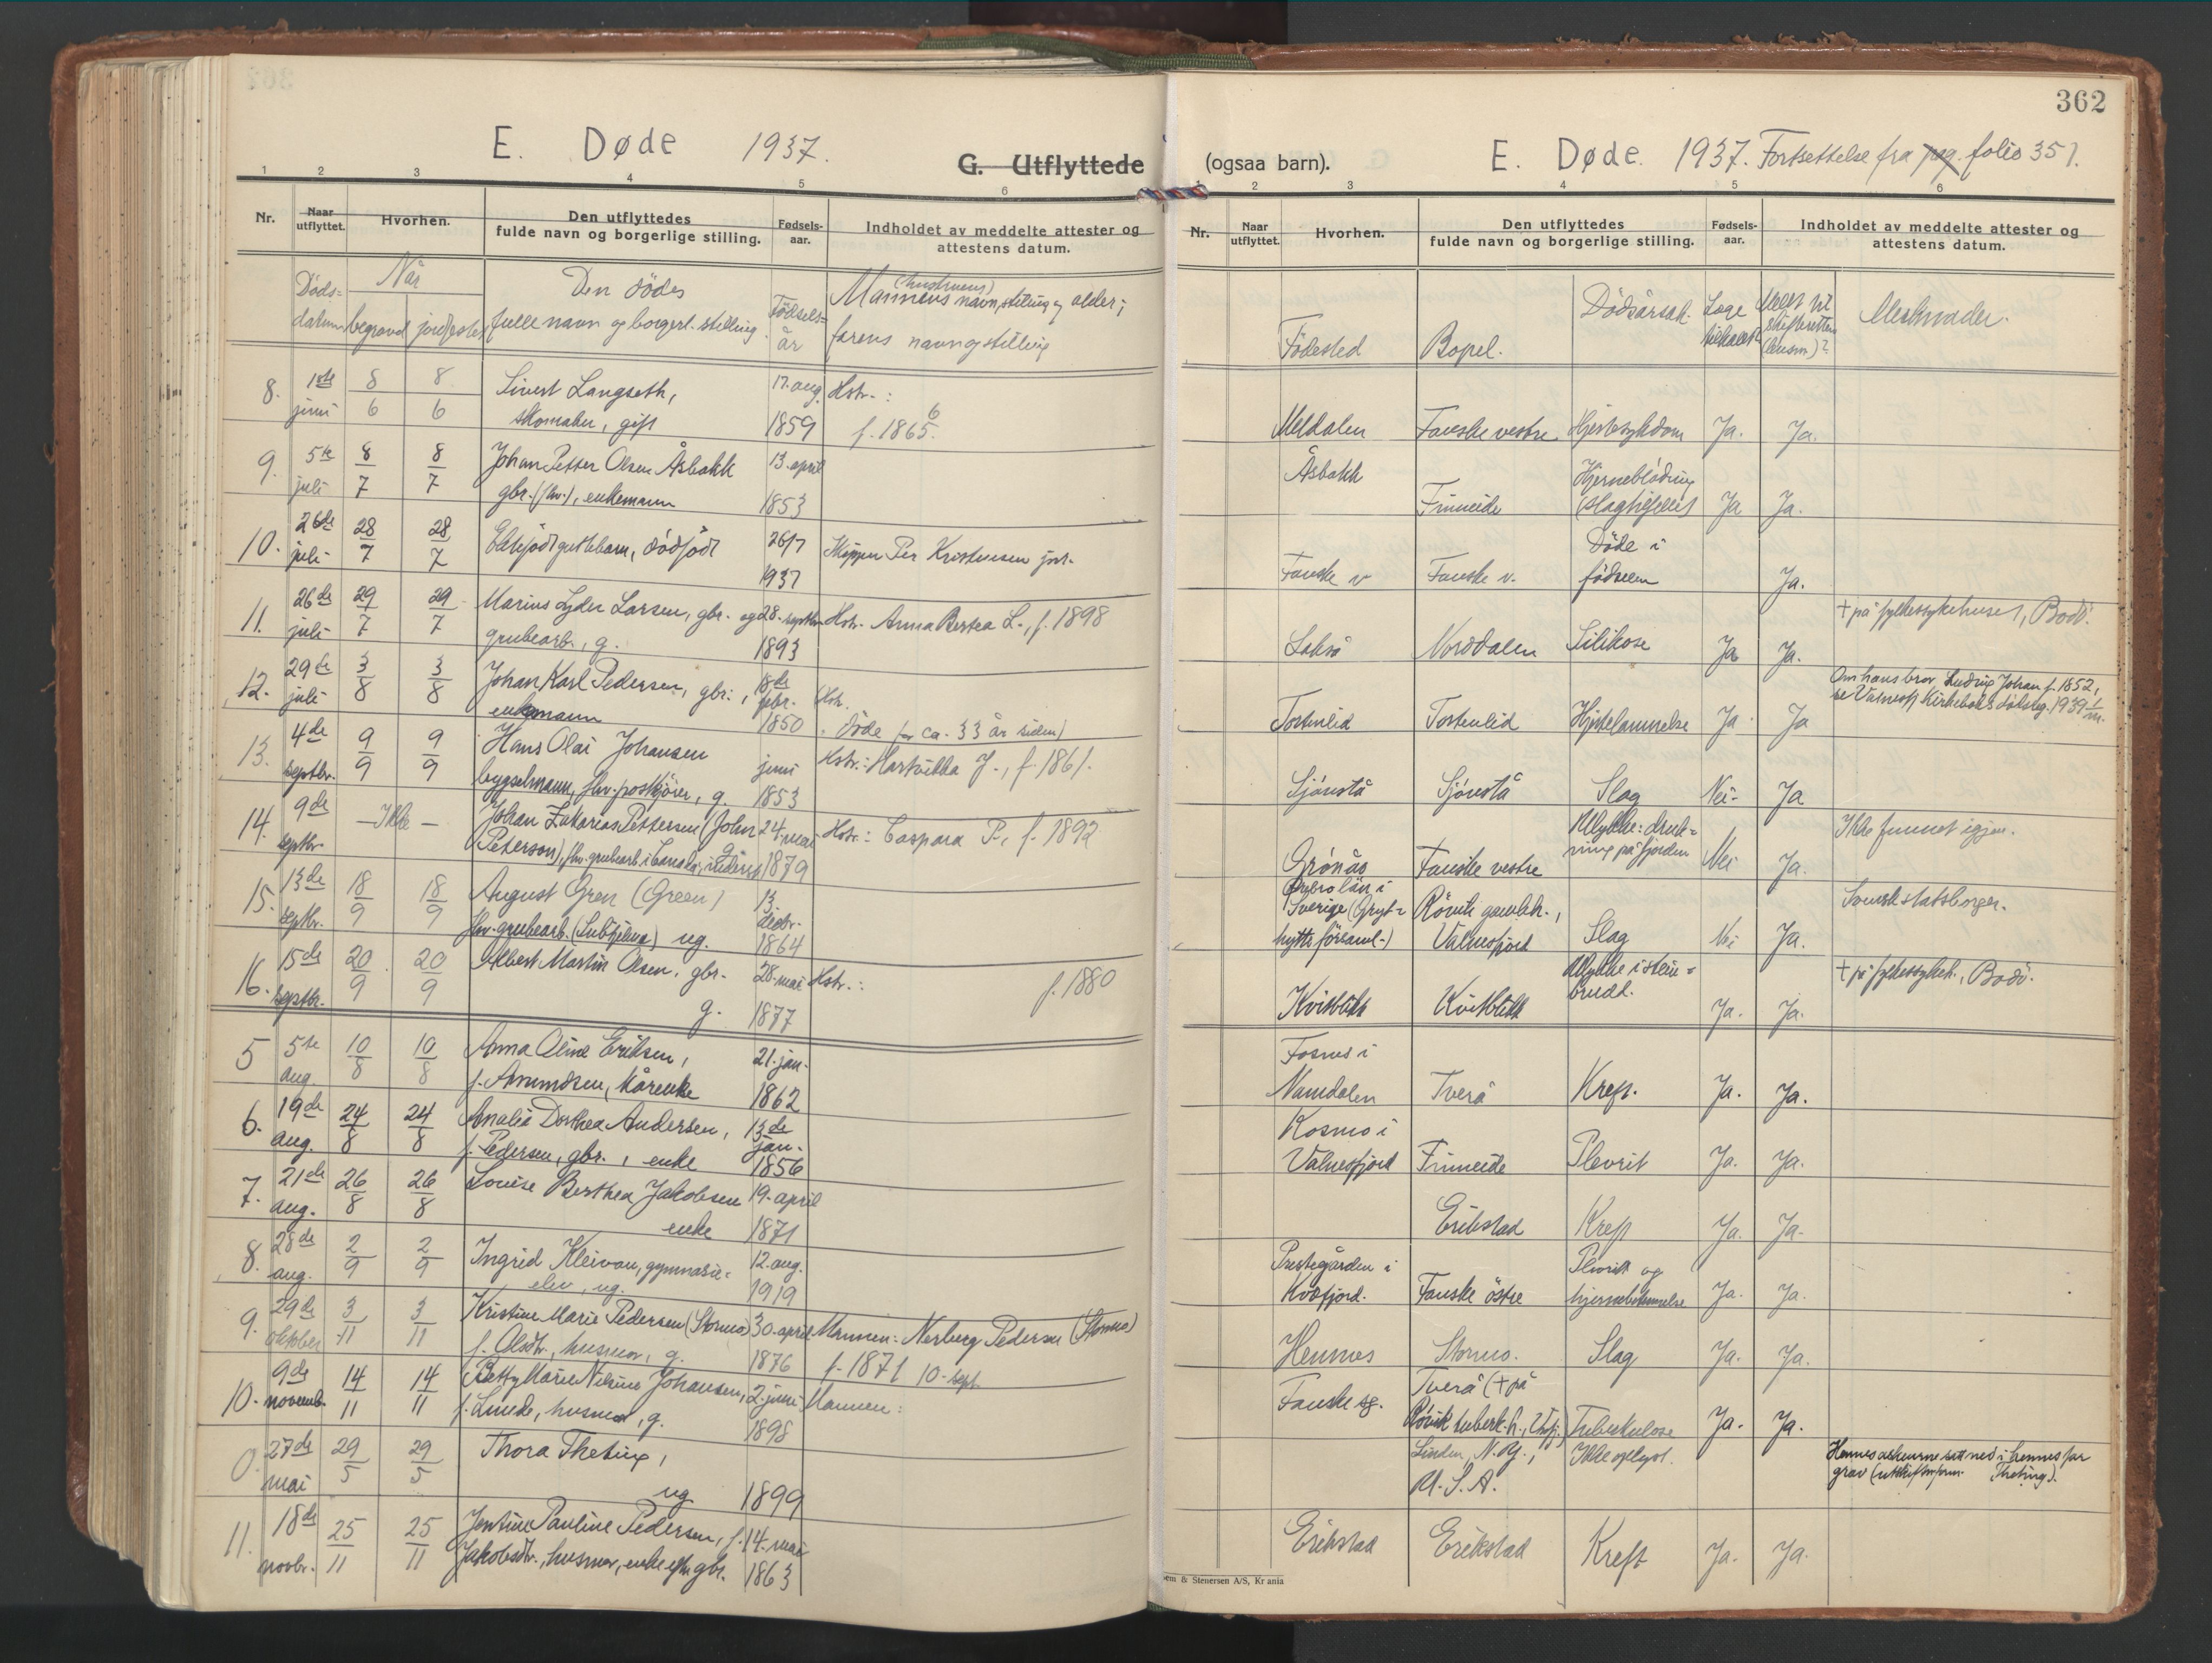 E. Døde 1937.
G. Utflyttede
1 2 3 4 5 6
Nr.
Naar utflyttet.
Hvorhen.
Den utflyttedes
fulde navn og borgerlige stilling.
Fødsels-
aar.
Indholdet av meddelte attester og
attestens datum.
Døds-
datum
Når
begravd jordfestet
Den dödes
fulle navn og borgerl. stilling.
Födsels-
år
Mannens (hustruens) navn, stilling og alder;
farens navn og stilling
8. 1ste juni 8/6 8/6 Sivert Langseth, 17. aug. Hstr.:
skomaker, gift 1859 f. 1865.
6
9. 5te juli 8/7 8/7 Johan Petter Olsen Åsbakk 13. april
gbr. (fhv.), enkemann 1853
10. 26de juli 28/7 28/7 Ektefödt guttebarn, dödfödt 26/7 Skipper Per Kristensen jnr.
1937
11. 26de juli 29/7 29/7 Marius Lyder Larsen, gbr. og 28. septbr. Hstr. Anna Bertea L., f. 1898
grubearb., g. 1893
12. 29de juli 3/8 3/8 Johan Karl Pedersen, gbr., 18de febr. Hstr.
enkemann 1850 döde for ca. 33 år siden)
13. 4de septbr. 9/9 9/9 Hans Olai Johansen juni Hstr.: Hartvikka J., f. 1861.
bygselmann, fhv. postkjörer, g. 1853
14. 9de septbr. — Ikke — Johan Zakarias Pettersen (John 24. mai Hstr.: Caspara P., f. 1892
Peterson), fhv. grubearb. i Canada, g. 1879
15. 13de septbr. 18/9 18/9 August Gren (Green) 13. decbr.
fhv. grubearb. (Sulitjelma) ug. 1864
16. 15de septbr. 20/9 20/9 Albert Martin Olsen, gbr. 28. mai Hstr.: f. 1880
g. 1877
5 5te aug. 10/8 10/8 Anna Oline Eriksen, 21. jan.
f. Amundsen, kårenke 1862
6. 19de aug. 24/8 24/8 Analia Dorthea Andersen, 13de jan.
f. Pedersen, gbr., enke 1856
7. 21de aug. 26/8 26/8 Lovise Berthea Jakobsen 19. april
enke 1871
8. 28de aug. 2/9 2/9 Ingrid Kleivan, gymnasie- 12. aug.
elev, ug. 1919
9. 29de oktober 3/11 3/11 Kristine Marie Pedersen (Stormo) 30. april Mannen: Norberg Pedersen (Stormo)
f. Olsdtr., husmor, g. 1876 f. 1871 10. sept.
10. 9de novemb. 14/11 14/11 Betty Marie Nilsine Johansen, 2. juni Mannen:
f. Lunde, husmor, g. 1898
0. 27de mai 29/5 29/5 Thora Theting,
ug 1899
11. 18de novbr. 25/11 25/11 Jentine Pauline Pedersen, f. 14. mai
Jakobsdtr., husmor, enke efter gbr. 1863
362
(ogsaa barn).
E. Døde. 1937. Fortsettelse fra pag. folio 351.
1 2 3 4 5 6
Nr.
Naar
utflyttet.
Hvorhen.
Den utflyttedes
fulde navn og borgerlige stilling.
Fødsels-
aar.
Indholdet av meddelte attester og
attestens datum.
Födested Bopel. Dödsårsak. Læge tilkaldt? Meldt til skifteretten (lensm)? Merknader.
Meldalen Fauske vestre Hjertesykdom Ja. Ja.
Åsbakk Finneide Hjerneblödning (slagtilfelle) Ja Ja.
Fauske v Fauske v. Döde i födselen Ja.
Lakså Norddalen Silikose Ja Ja. + på fylkessykehuset, Bodö.
Tortenlid Tortenlid Hjertelammelse Ja. Ja Om hans bror, Ludvig Johan f. 1852,
se Valnesfj. Kirkeboks dödsreg. 1939
Sjönstå Sjönstå Slag Nei. Ja
Grönås Fauske vestre Ulykke: drukning på fjorden Nei Ja. Ikke funnet igjen.
Örebro län i Sverige (Grythytte församl.) Rövik gamleh., Valnesfjord Slag Nei Ja. Svensk statsborger.
Kvitblikk Kvitblikk Ulykke i stein-
brudd. Ja. Ja. + på fylkessykeh., Bodö.
Fosnes i
Namdalen Tverå Kreft. Ja. Ja.
Kosmo i
Valnesfjord Finneide Plevrit Ja. Ja.
Erikstad Kreft Ja. Ja.
Prestegården i
Kvæfjord. Fauske östre Plevrit og
hjernebetennelse Ja. Ja.
Hennes Stormo. Slag Ja. Ja.
Fauske sg. Tverå (+ på
Rövik tuberk.h., Vnfj.) Tuberkulose Ja. Ja.
Linden, N.Y.,
U.S.A. Ikke oplyst. Hennes askeurne satt ned i hennes far
grav (Theting).
Erikstad Erikstad Kreft Ja. Ja.
& Stenersen A/S, Kr ania